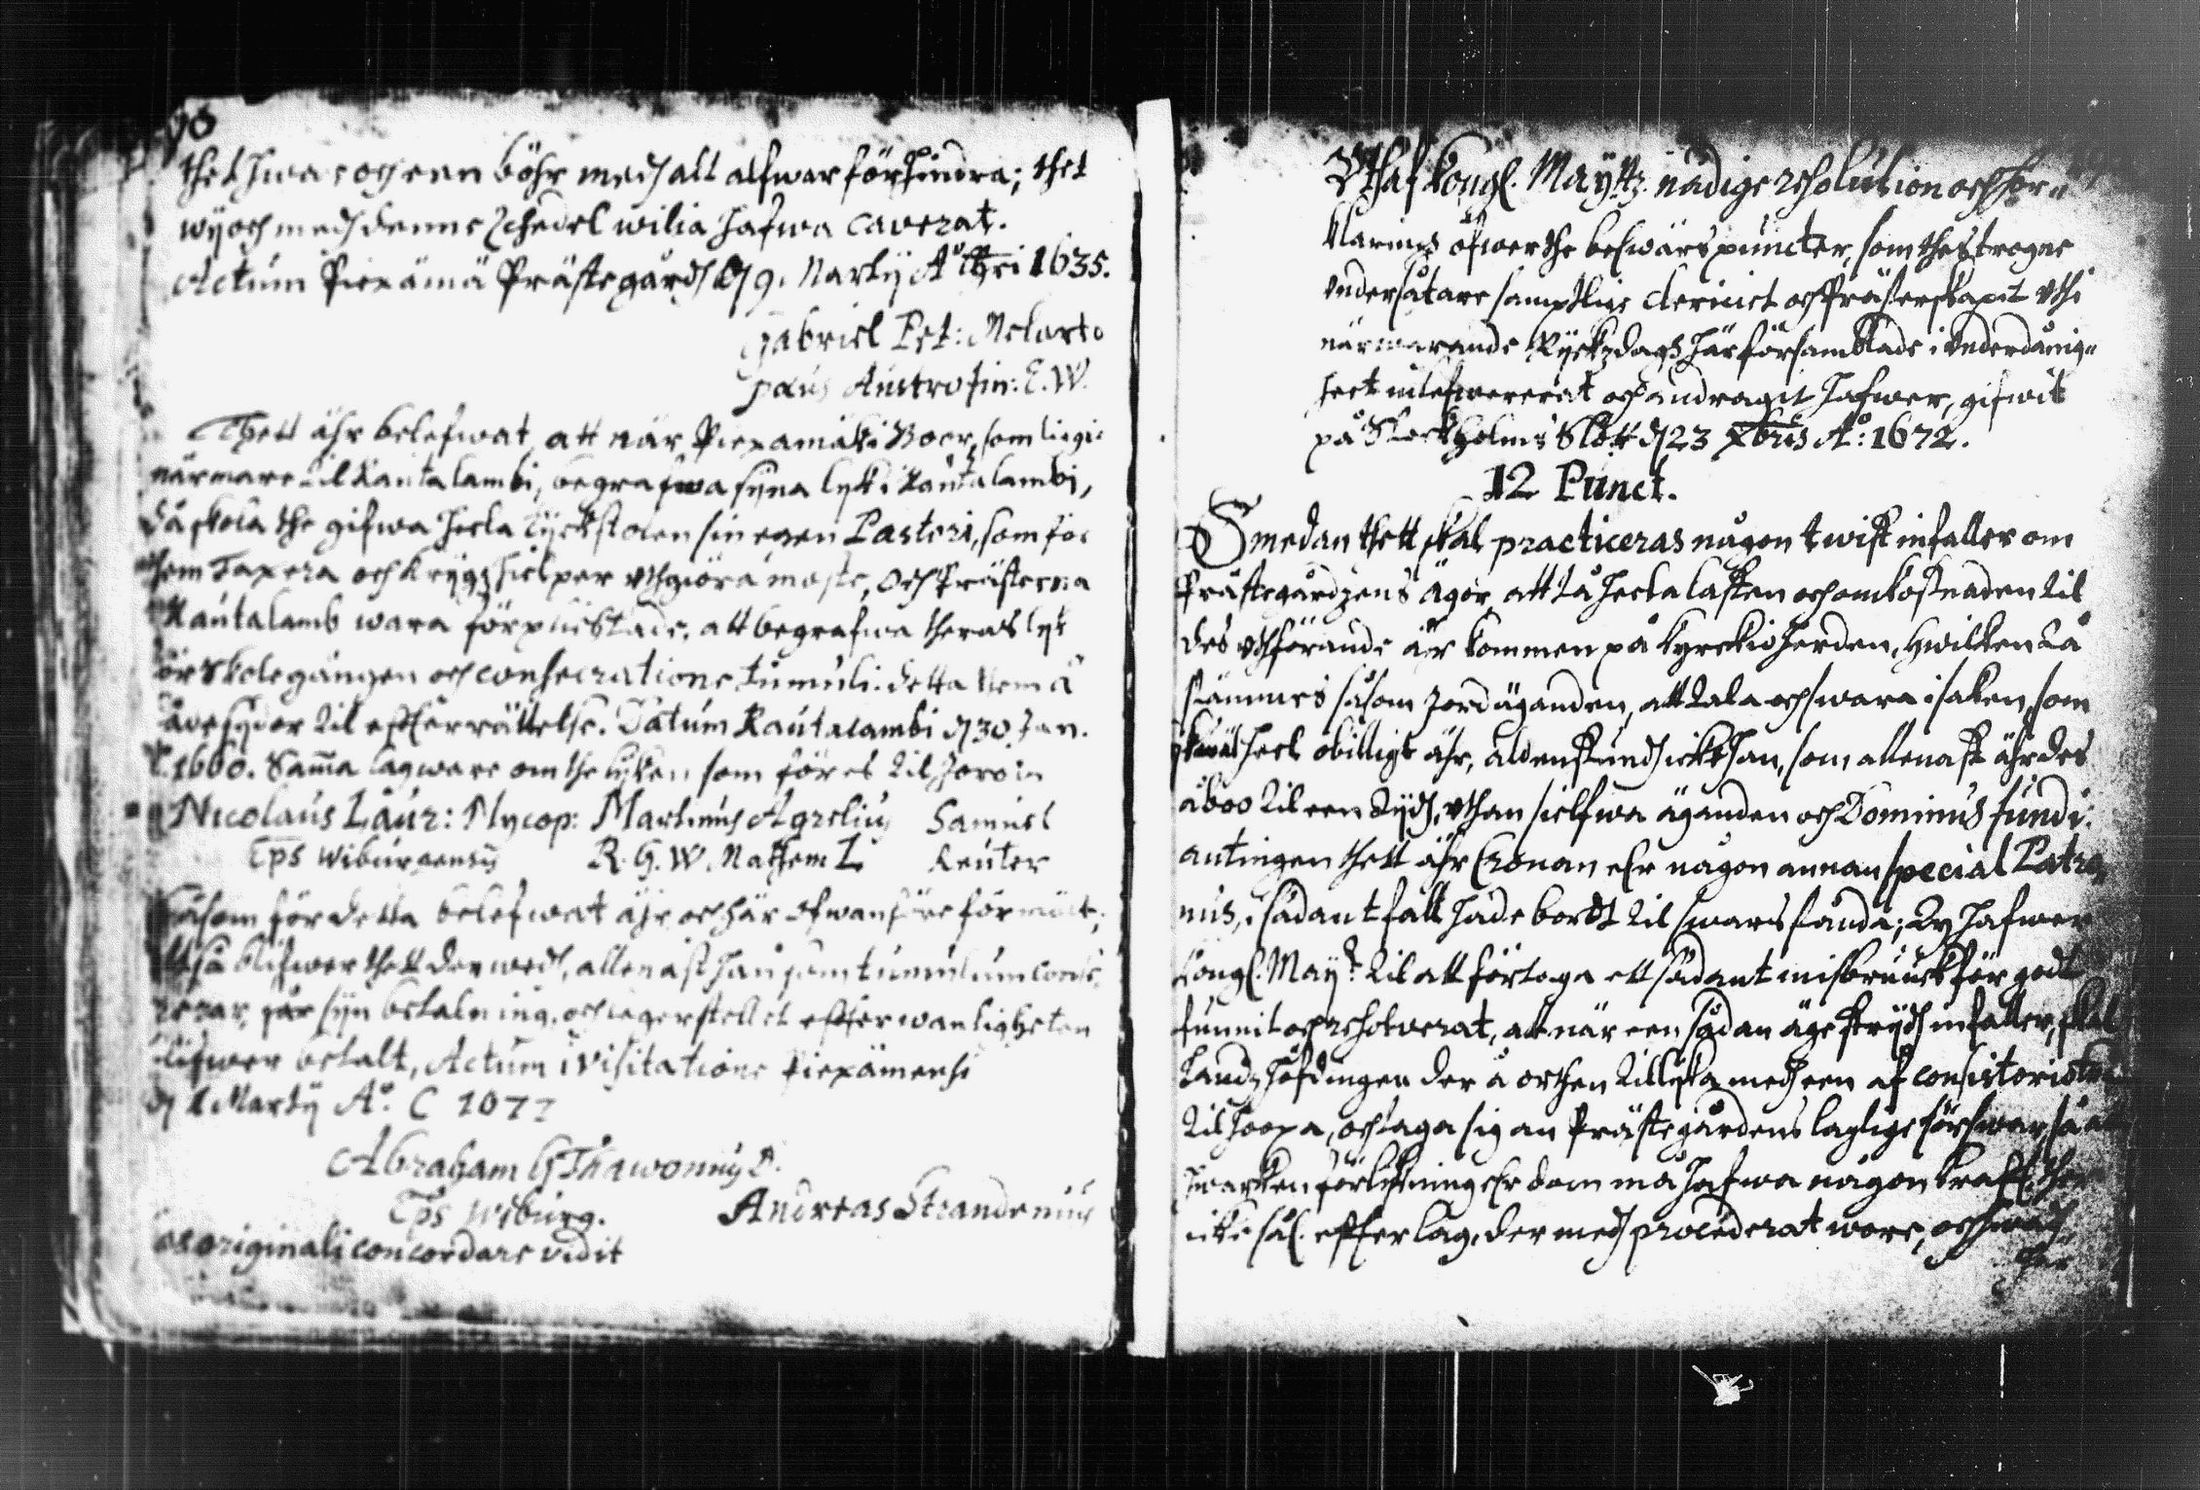 thet hwar och een böhr medh alt alfwar förhindra; thet
wij och medh denne Zchedel wilia hafwa caverat.
Actum Piexämä Prästegårdh d 9. Martij A:o Chri 1635.
Gabriel Pet: Melarto
pæus Austrofin: E. W.
Thett ähr belefwat, att när Piexamäki Boer, som liggie
närmare til Rautalambi, begrafwa syna lyk i Rautalambi,
då skola the gifwa heela lyckstolen sin egen Pastori, som för
them Taxera och krygzhielper vthgiöra moste, och Prästerna
Rautalamb wara förplichtade, att begrafwa theras lyk
för skolegången och consecratione tumuli. detta
til effterrättelse. Datum Rautalambi d 30. Jan.
1660. Sama lag ware om the lyken som föres til Jorois
Nicolaus Laur: Nycop: Martinus Agrelius Samuel
Eps Wiburgensis R. G. W. Mathem L. Reuter
Såsom för detta belefwat ähr och här ofwanföre förmält;
Altså blifwer thett der wedh, allenast han som tumulum conse
crerar, får syn betalning, och legerstellet effter wanligheten
blifwer betalt, Actum i visitatione Piexämensi
d Martij A:o C 1677
Abraham G Thawonius D.
Eps Wiburg. Andreas Strandenius
originali concordare vidit
Vthaf kongl. Mayttz nådige resolution och för=
klaring öfwer the beswärs puncter, som thes trogne
vndersåtare samptlige Clericiet och Prästerskapit vthi
närwarande Ryckzdagh här församblade i vnderdånig=
heet inlefwererat och andragit hafwer, gifwit
på Stockholms Slott d 23 Xbris A:o 1672.
12 Punct.
Emedan thett skal practiceras någon twist infaller om
Prästegårdzens ägor, att tå heela lasten och omkostnaden til
des vthförande är kommen på kyrckioherden, hwilken tå
stämmes såsom jordäganden, att tala och swara i saken, som
heel obilligt ähr, aldenstundh icke han, som allenast ähr des
åboo til een tydh, vthan sielfwa äganden och Dominus fundi;
antingen thett ähr Cronan eller någon annan special Patro
nus, i sådant fall hade bordt til swars stånda; Ty hafwer
kongl. Mayt. til att förtaga ett sådant misbruuk för godt
funnit och resolverat, att när een sådan äge strydh infaller, skal
Landzhöfdingen der å orthen tillyka medh een af Consistorio
tilhoopa, och taga sig an Prästegårdens laglige förswar, så at
hwarken förlikning eller dom må hafwa någon krafft, ther
icke sål. effter lag, der medh procederat wore, och hwadh
ther